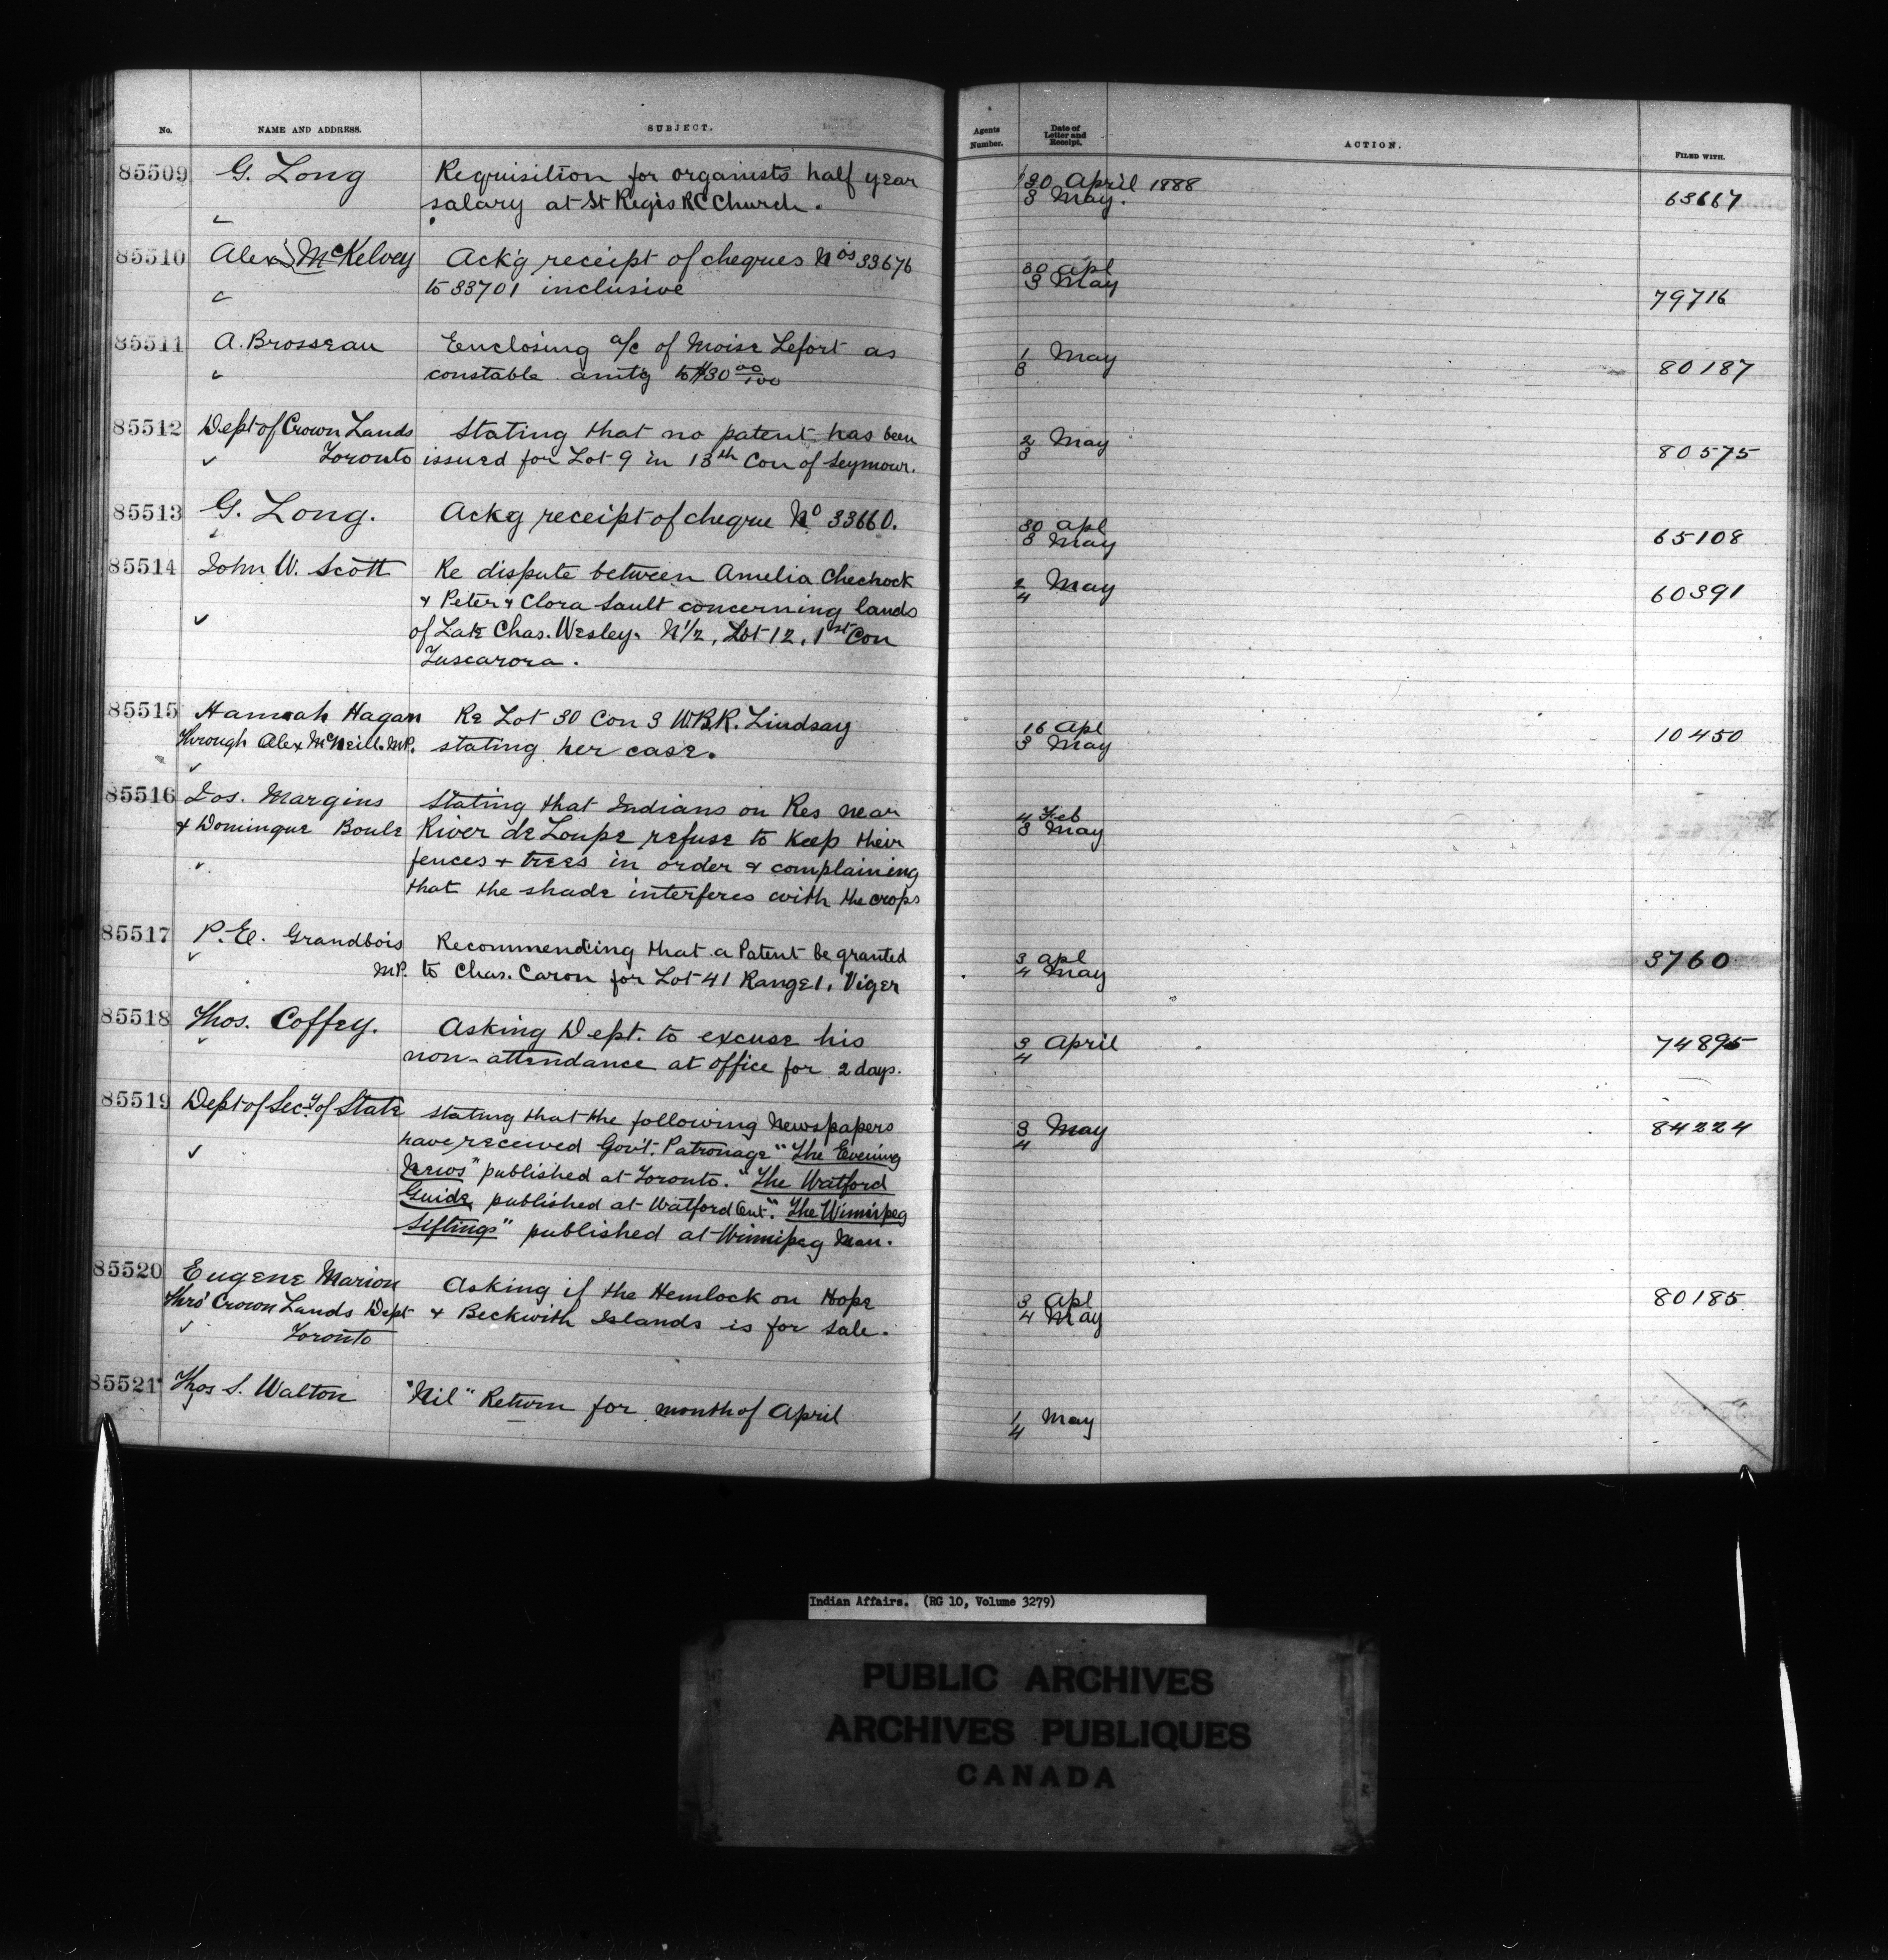 No. NAME AND ADDRESS. SUBJECT. Agents Number. Date of Letter and Receipt. ACTION. FILED WITH.
85509 G. Long Requisition for organists half year 30 April 1888
salary at St Regis RC Church. 3 May. 63667
85510 Alex McKelvey Ack'g receipt of cheques Nos 33676 30 Apl
to 33701 inclusive 3 May 79716
85511 A. Brosseau Enclosing a/c of Moise Lefort as 1 May
constable amt'g to $30 00/100 3 80187
85512 Dept of Crown Lands Stating that no patent has been 2 May
Toronto issued for Lot 9 in 13th Con of Seymour. 3 80575
85513 G. Long. Ackg receipt of cheque No 33660. 30 Apl
3 May 65108
85514 John W. Scott Re dispute between Amelia Chechock 2 May
& Peter & Clora Sault concerning lands 4 60391
of Late Chas. Wesley. N 1/2, Lot 12, 1st Con
Tuscarora.
85515 Hannah Hagan Re Lot 30 Con 3 W.B.R. Lindsay 16 Apl
through Alex McNeill. M.P. stating her case. 3 May 10450
85516 Jos. Margins Stating that Indians on Res near 4 Feb
& Dominque Boule River de Loupe refuse to keep their 3 May
fences & trees in order & complaining
that the shade interferes with the crops
85517 P. E. Grandbois Recommending that a Patent be granted 3 Apl
M.P. to Chas. Caron for Lot 41 Range 1, Viger 4 May 3760
85518 Thos. Coffey. Asking Dept. to excuse his 3 April
non-attendance at office for 2 days. 4 74895
85519 Dept of Secy of State stating that the following Newspapers 3 May 84224
have received Govt. Patronage "The Evening 4
News" published at Toronto. "The Watford
Guide, published at Watford Ont". The Winnipeg
Siftings" published at Winnipeg Man.
85520 Eugene Marion Asking if the Hemlock on Hope 3 Apl 80185
thro' Crown Lands Dept & Beckwith Islands is for sale. 4 May
Toronto
85521 Thos S. Walton "Nil" Return for month of April 1 May
4
Indian Affairs. (RG 10, Volume 3279)
PUBLIC ARCHIVES
ARCHIVES PUBLIQUES
CANADA